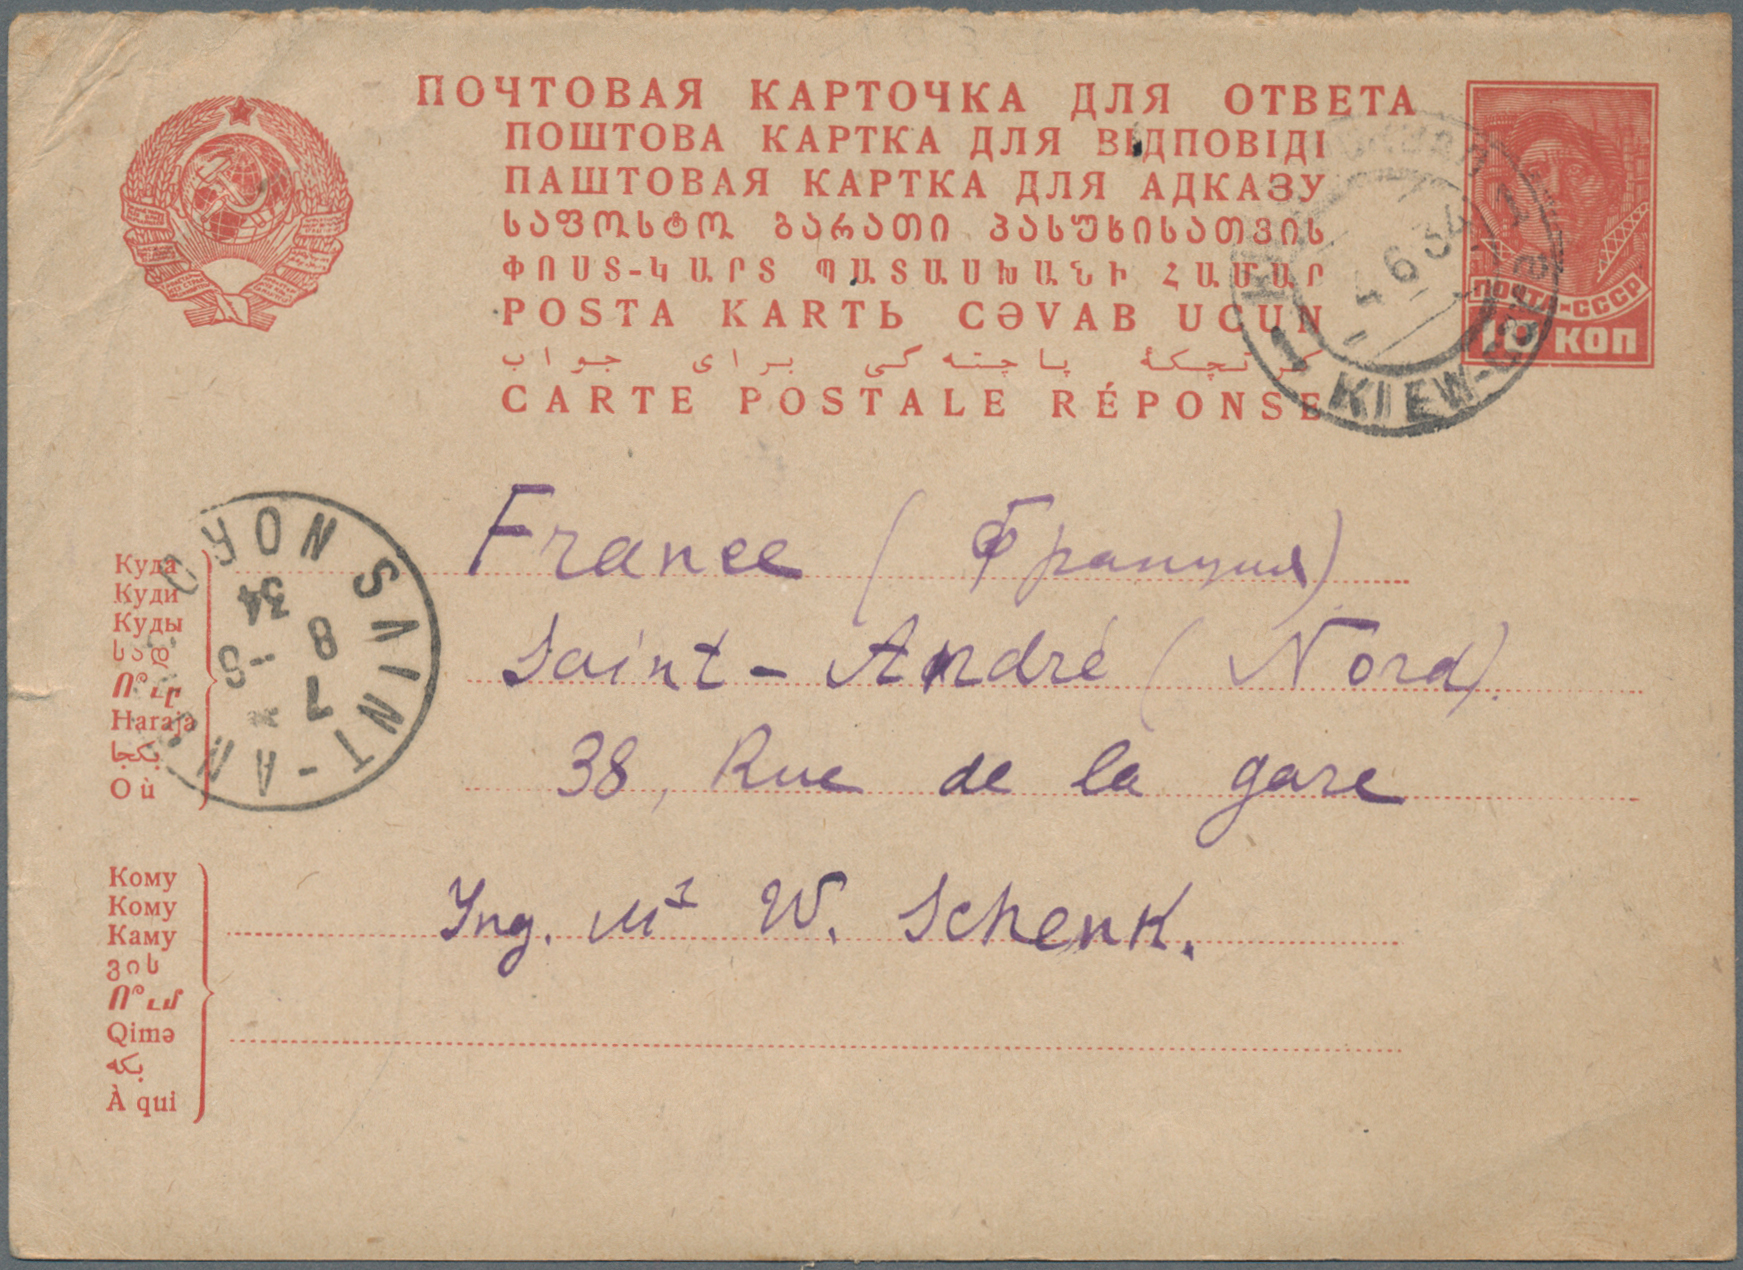 ПОЧТОВАЯ КАРТОЧКА ДЛЯ ОТВЕТА
ПОШТОВА КАРТКА ДЛЯ ВІДПОВІДІ
ПАШТОВАЯ КАРТКА ДЛЯ АДКАЗУ
საფოსტო ბარათი პასუხისათვის
ՓՈՍՏ-ԿԱՐՏ ՊԱՏԱՍԽԱՆԻ ՀԱՄԱՐ
POSTA KARTЬ CƏVAB UCUN
كرتچكۀ پاچتەكی برای جواب
CARTE POSTALE RÉPONSE
ПОЧТА-СССР
10 КОП
4 6 34
1 KIEW
SAINT-AN NORD
7 8
34
Куда
Куди
Куды
სად
Ո՞ւր
Haraja
بكجا
Où
France (Франция)
Saint-André (Nord).
38, Rue de la gare
Кому
Кому
Каму
ვის
Ո՞ւմ
Qimə
بكه
À qui
Ing. Mr W. Schenk.